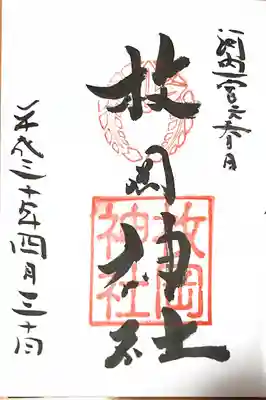 河内一宮元春日
枚岡神社
枚岡
神社
平成三十年四月三十日